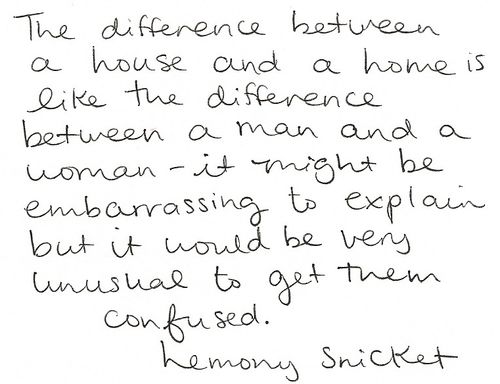 The difference between
a house and a home is
like the difference
between a man and a
woman - it might be
embarrassing to explain
but it would be very
unusual to get them
confused.
Lemony Snicket